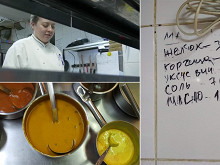 желток-2
горчица-
уксус вин.
соль
масло-1